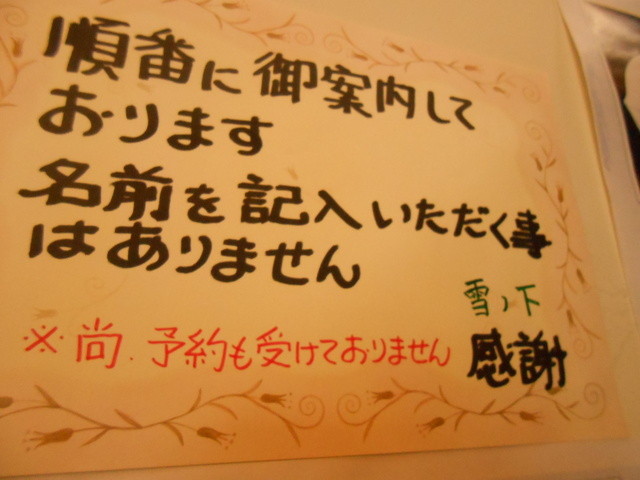 順番に御案内して
おります
名前を記入いただく事
はありません
雪ノ下
※尚.予約も受けておりません
感謝